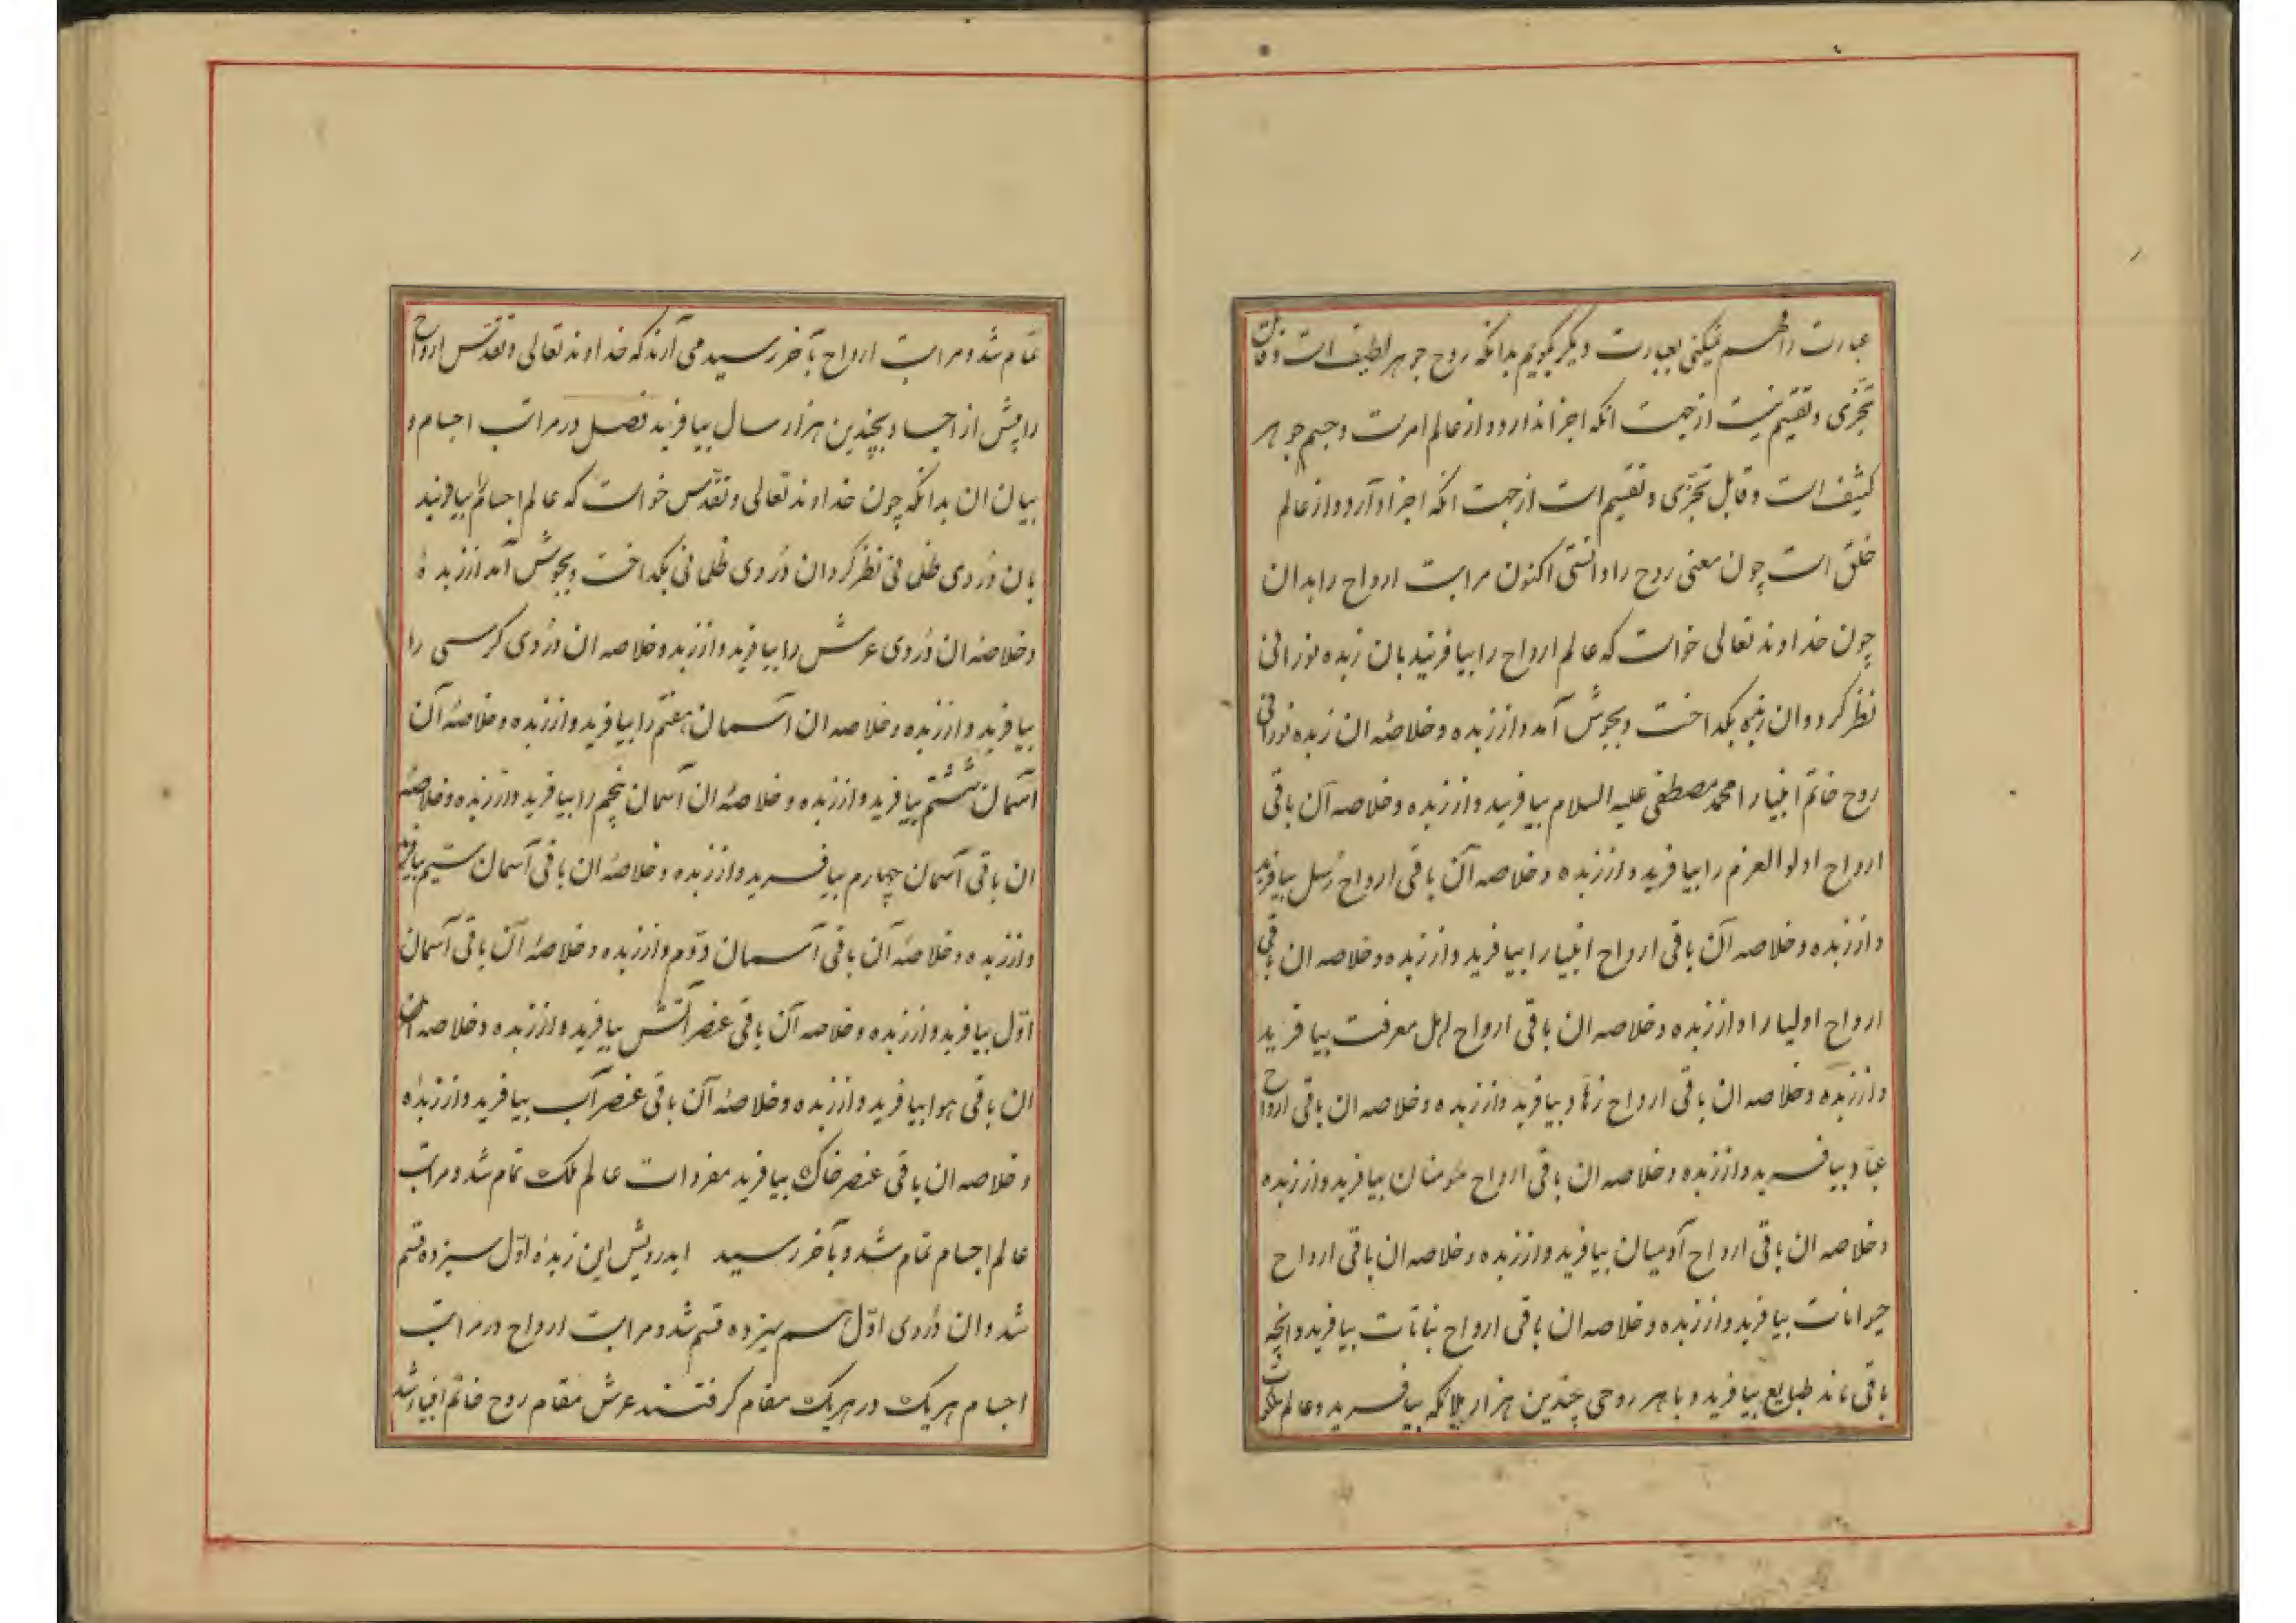 عبارت را فهم نمیکنی بعبارت دیگر بگویم بدانکه روح جوهر لطیف است و قابل
تجزی و تقسیم نیست از جهت انکه اجزا ندارد و از عالم امرست و جسم جوهر
کثیف است و قابل تجزی و تقسیم است از جهت انکه اجزا دارد و از عالم
خلق است چون معنی روح را دانستی اکنون مراتب ارواح را بدان
چون خداوند تعالی خواست که عالم ارواح را بیافریند بان زبده نورانی
نظر کرد و ان زبده بگداخت و بجوش آمد و از زبده و خلاصهٔ ان زبده نورانی
روح خاتم انبیا را محمد مصطفی علیه السلام بیافرید و از زبده و خلاصه آن باقی
ارواح اولوالعزم را بیافرید و از زبده و خلاصه آن باقی ارواح رسل بیافرید
و از زبده و خلاصه آن باقی ارواح انبیا را بیافرید و از زبده و خلاصه ان باقی
ارواح اولیا را و از زبده و خلاصه ان باقی ارواح اهل معرفت بیافرید
و از زبده و خلاصه ان باقی ارواح زهاد بیافرید و از زبده و خلاصه ان باقی ارواح
عباد بیافرید و از زبده و خلاصه ان باقی ارواح مؤمنان بیافرید و از زبده
و خلاصه ان باقی ارواح آدمیان بیافرید و از زبده و خلاصه ان باقی ارواح
حیوانات بیافرید و از زبده و خلاصه ان باقی ارواح نباتات بیافرید و انچه
باقی ماند طبایع بیافرید و با هر روحی چندین هزار ملائکه بیافرید و عالم ملکوت
تمام شد و مراتب ارواح بآخر رسید می آرند که خداوند تعالی و تقدس ارواح
را پیش از اجساد بچندین هزار سال بیافرید فصل در مراتب اجسام و
بیان ان بدانکه چون خداوند تعالی و تقدس خواست که عالم اجسام را بیافریند
بان دُردی ظلمانی نظر کرد ان دُردی ظلمانی بگداخت و بجوش آمد از زبدهٔ
و خلاصهٔ ان دُردی عرش را بیافرید و از زبده و خلاصه ان دُردی کرسی را
بیافرید و از زبده و خلاصه ان اسمان هفتم را بیافرید و از زبده و خلاصهٔ آن
آسمان ششتم بیافرید و از زبده و خلاصهٔ ان آسمان پنجم را بیافرید و از زبده و خلاصهٔ
ان باقی آسمان چهارم بیافرید و از زبده و خلاصهٔ ان باقی آسمان سیم بیافرید
و از زبده و خلاصهٔ آن باقی آسمان دوّم و از زبده و خلاصهٔ آن باقی آسمان
اوّل بیافرید و از زبده و خلاصه آن باقی عنصر آتش بیافرید و از زبده و خلاصه ان
ان باقی هوا بیافرید و از زبده و خلاصهٔ آن باقی عنصر آب بیافرید و از زبدهٔ
و خلاصه ان باقی عنصر خاک بیافرید مفردات عالم ملک تمام شد و مراتب
عالم اجسام تمام شد و بآخر رسید ایدرویش این زبدهٔ اوّل سیزده قسم
شد و ان دُردی اوّل هم سیزده قسم شد و مراتب ارواح در مراتب
اجسام هر یک در هر یک مقام گرفتند عرش مقام روح خاتم انبیا شد